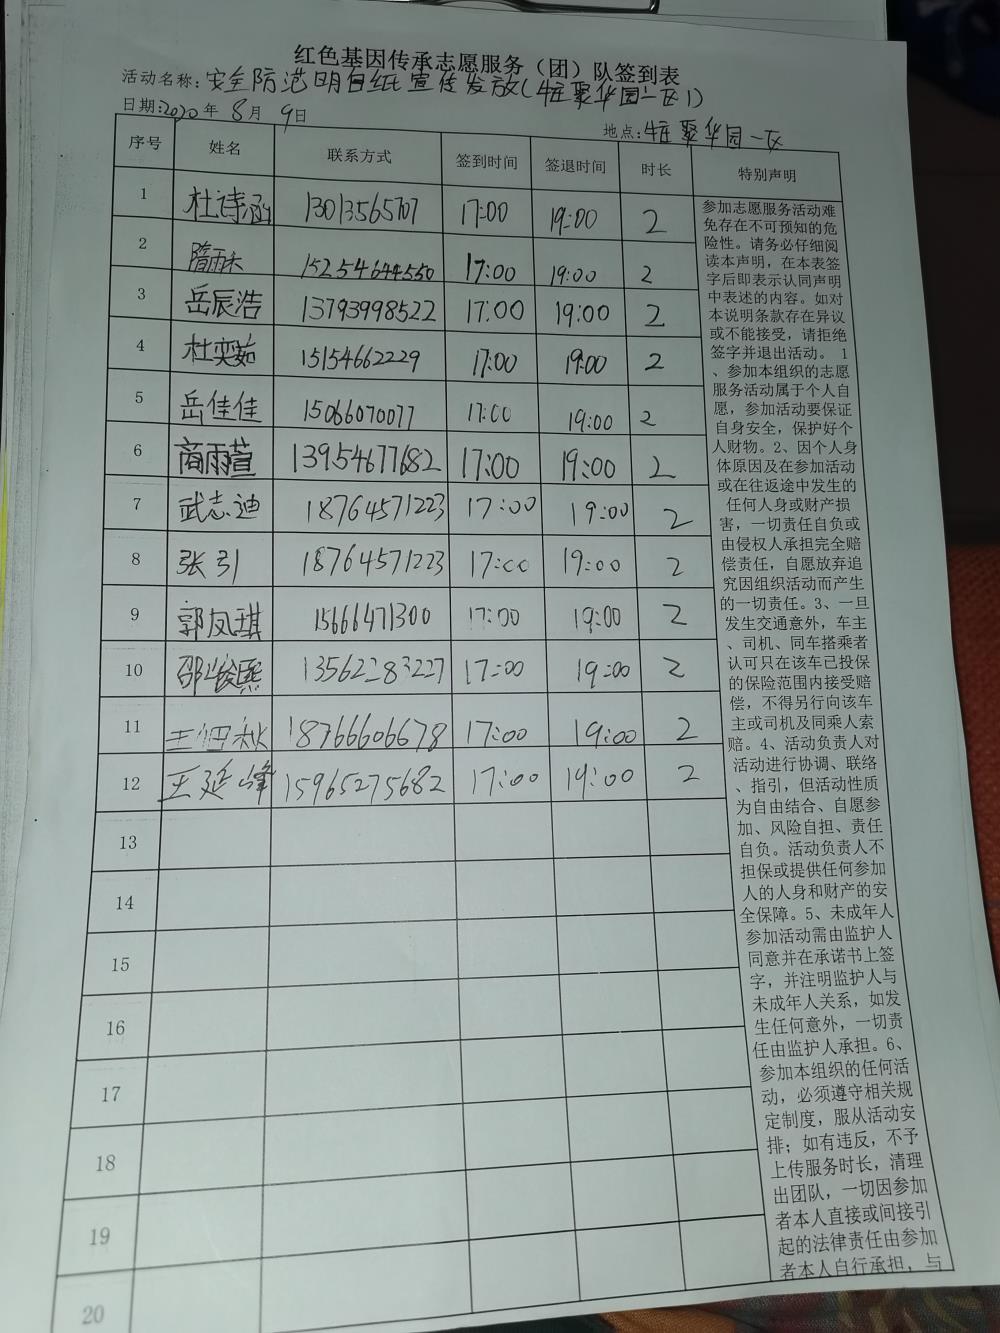 红色基因传承志愿服务（团）队签到表
活动名称：安全防范明白纸宣传发放(聚华园一区1)
日期：2020年 8月 9日
地点：聚华园一区
序号 姓名 联系方式 签到时间 签退时间 时长 特别声明
1 杜诗涵 13013565707 17:00 19:00 2
2 隋雨禾 15254644550 17:00 19:00 2
3 岳辰浩 13793998522 17:00 19:00 2
4 杜奕茹 15154662229 17:00 19:00 2
5 岳佳佳 15066070077 17:00 19:00 2
6 商雨萱 13954677682 17:00 19:00 2
7 武志迪 18764571223 17:00 19:00 2
8 张引 18764571223 17:00 19:00 2
9 郭凤琪 15666471300 17:00 19:00 2
10 邵俊熙 13562283227 17:00 19:00 2
11 王秋 18766606678 17:00 19:00 2
12 王延峰 15965275682 17:00 19:00 2
13
14
15
16
17
18
19
20
参加志愿服务活动难
免存在不可预知的危
险性。请务必仔细阅
读本声明，在本表签
字后即表示认同声明
中表述的内容。如对
本说明条款存在异议
或不能接受，请拒绝
签字并退出活动。 1
、参加本组织的志愿
服务活动属于个人自
愿，参加活动要保证
自身安全，保护好个
人财物。2、因个人身
体原因及在参加活动
或在往返途中发生的
任何人身或财产损
害，一切责任自负或
由侵权人承担完全赔
偿责任，自愿放弃追
究因组织活动而产生
的一切责任。3、一旦
发生交通意外，车主
、司机、同车搭乘者
认可只在该车已投保
的保险范围内接受赔
偿，不得另行向该车
主或司机及同乘人索
赔。4、活动负责人对
活动进行协调、联络
、指引，但活动性质
为自由结合、自愿参
加、风险自担、责任
自负。活动负责人不
担保或提供任何参加
人的人身和财产的安
全保障。5、未成年人
参加活动需由监护人
同意并在承诺书上签
字，并注明监护人与
未成年人关系，如发
生任何意外，一切责
任由监护人承担。6、
参加本组织的任何活
动，必须遵守相关规
定制度，服从活动安
排；如有违反，不予
上传服务时长，清理
出团队，一切因参加
者本人直接或间接引
起的法律责任由参加
者本人自行承担，与